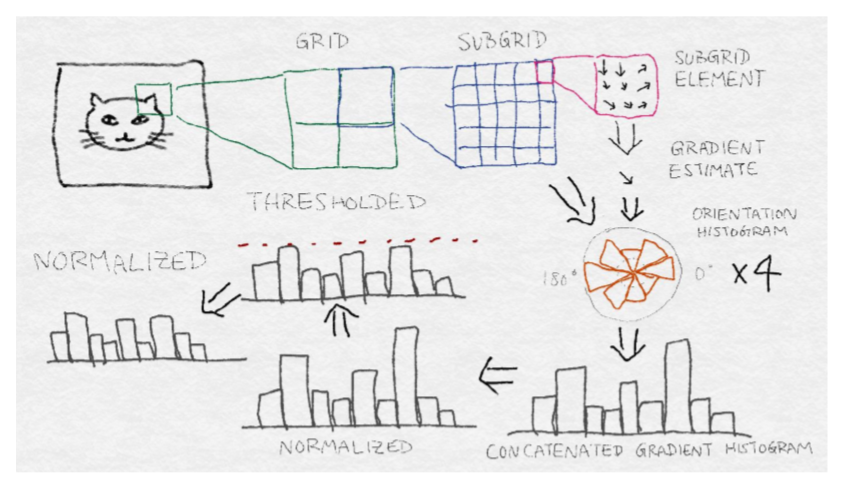 GRID
SUBGRID
SUBGRID
ELEMENT
GRADIENT
ESTIMATE
THRESHOLDED
ORIENTATION
HISTOGRAM
NORMALIZED
180°
0°
×4
NORMALIZED
CONCATENATED GRADIENT HISTOGRAM